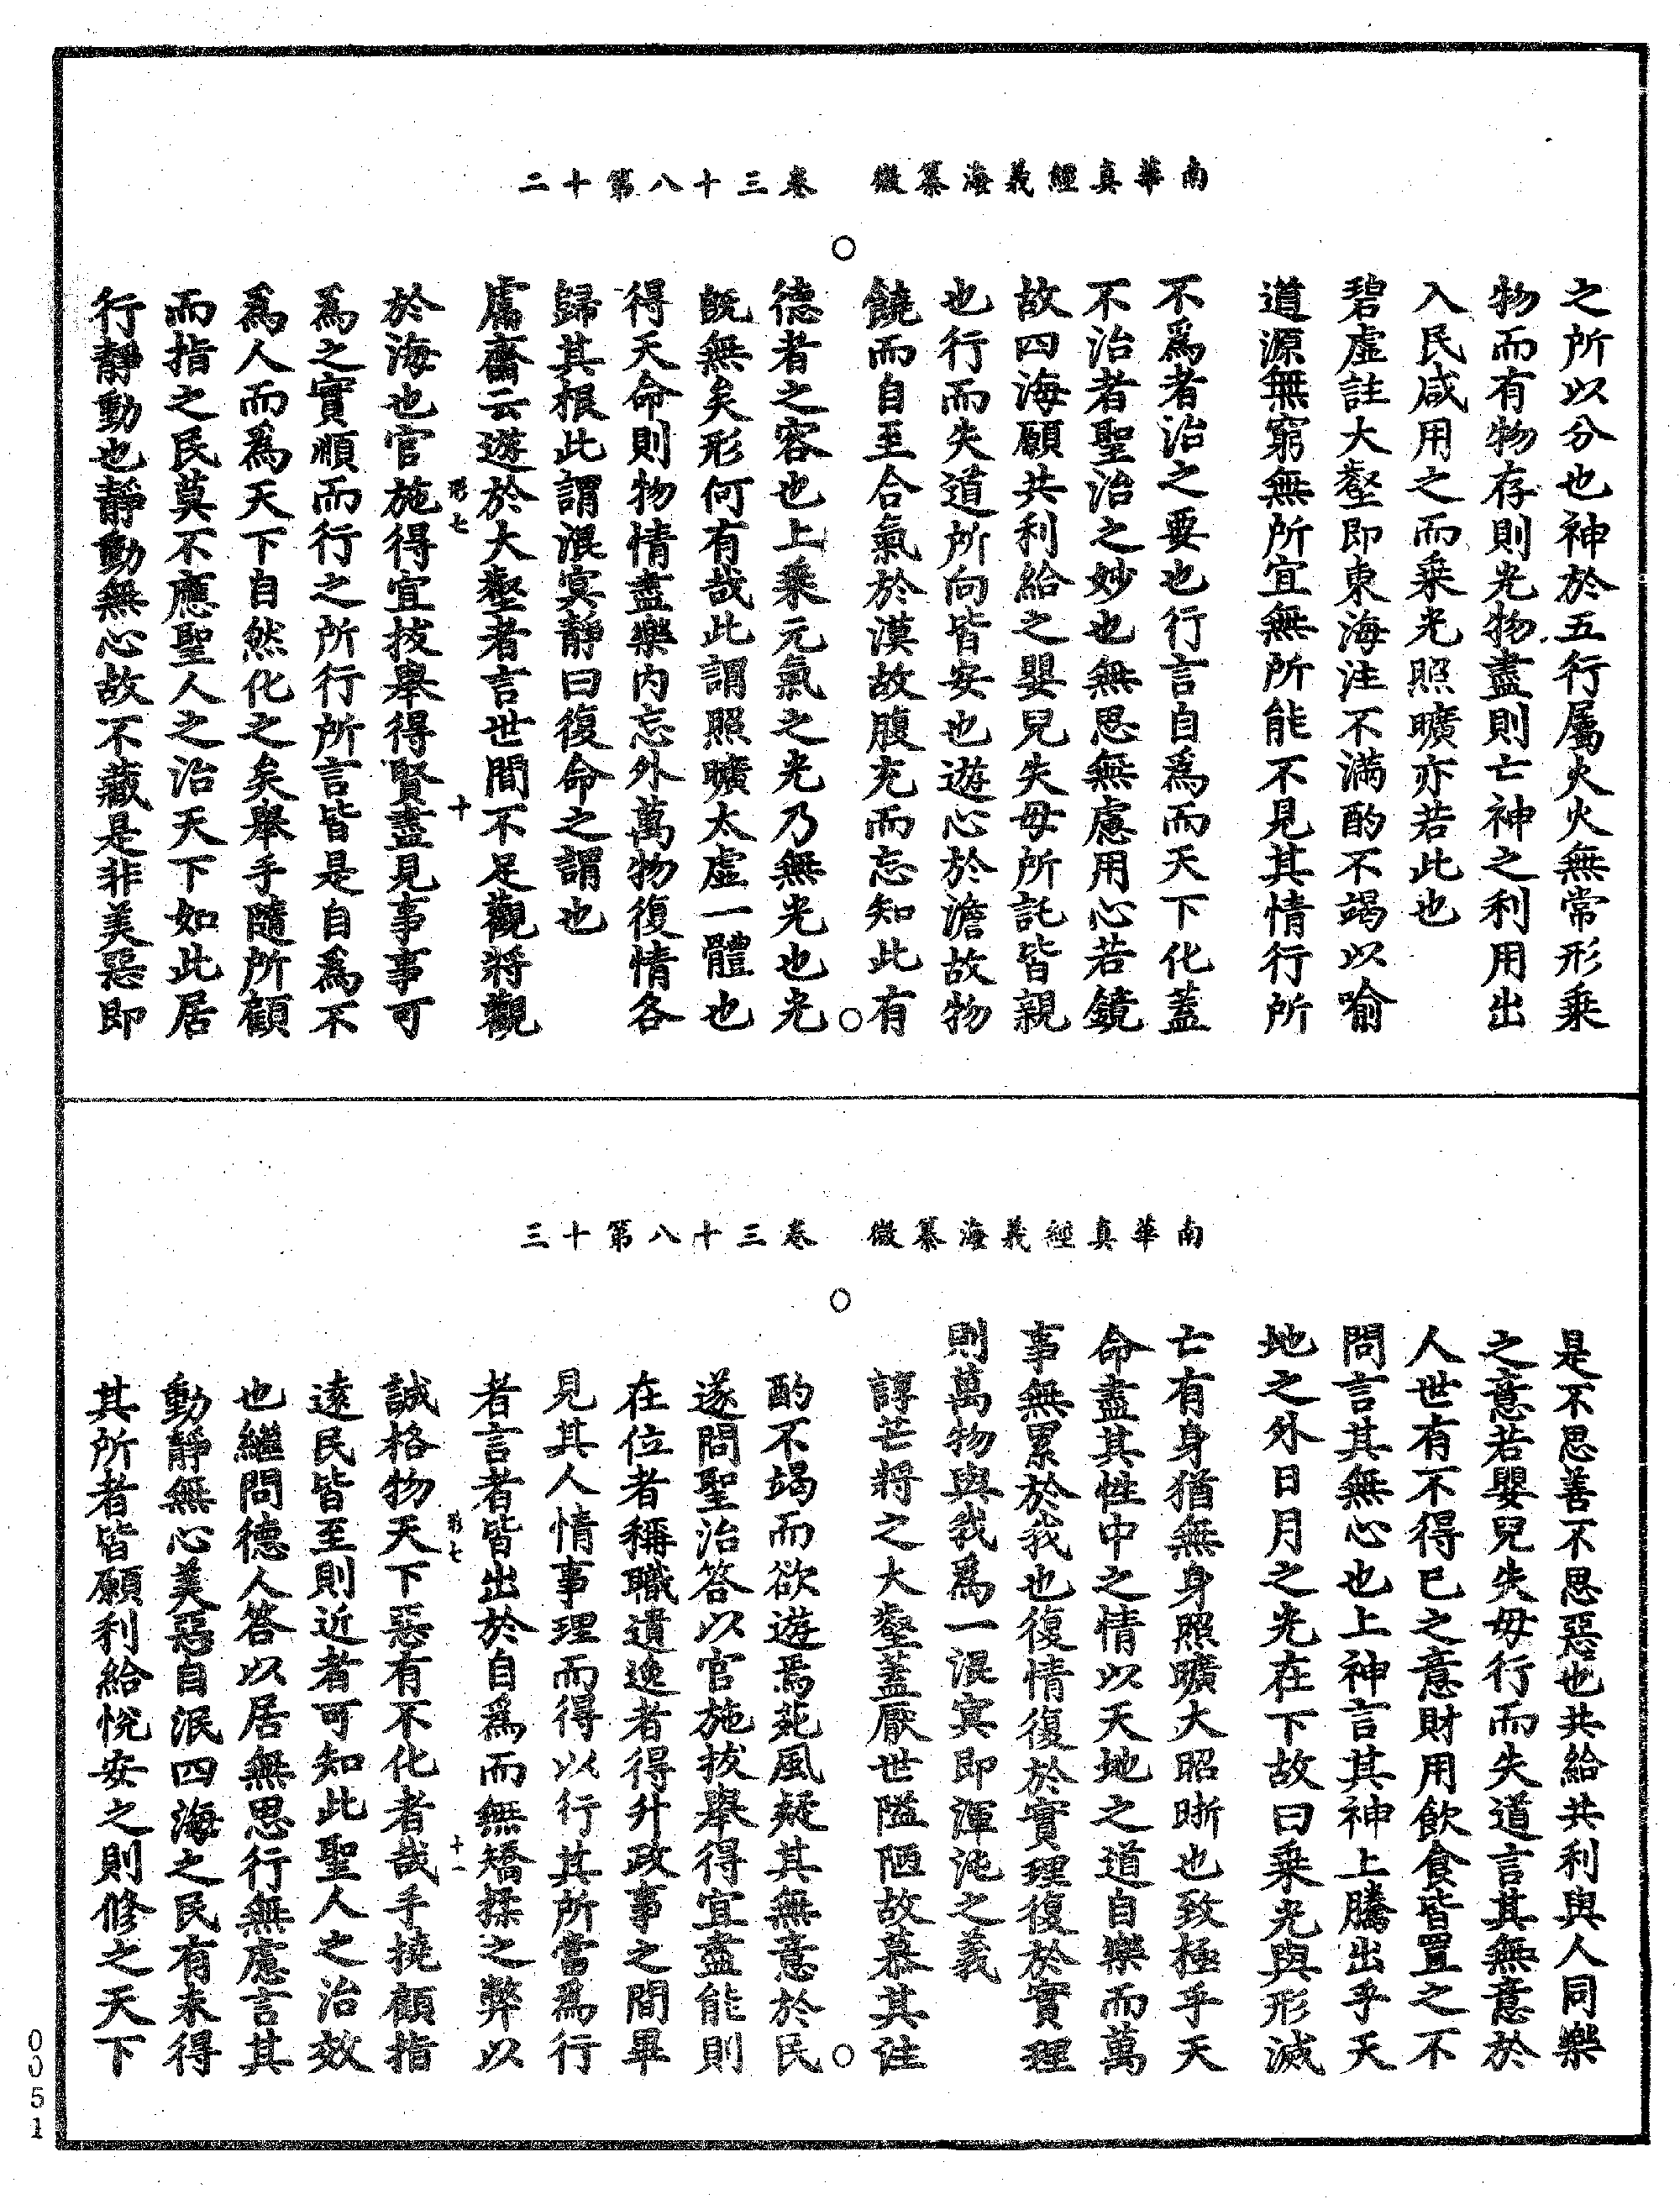 南華真經義海纂微　卷三十八第十二
之所以分也神於五行屬火火無常形乗
物而有物存則光物盡則亡神之利用出
入民咸用之而乗光照曠亦若此也
碧虛註大壑即東海注不滿酌不竭以喻
道源無窮無所宜無所能不見其情行所
不爲者治之要也行言自爲而天下化蓋
不治者聖治之妙也無思無慮用心若鏡
故四海願共利給之嬰兒失母所託皆親
也行而失道所向皆安也遊心於澹故物
饒而自至合氣於漠故腹充而忘知此有
德者之容也上乗元氣之光乃無光也光
旣無矣形何有哉此謂照曠太虛一體也
得天命則物情盡樂內忘外萬物復情各
歸其根此謂混冥靜曰復命之謂也
鬳齋云遊於大壑者言世間不足觀將觀
於海也官施得宜拔舉得賢盡見事事可
爲之實順而行之所行所言皆是自爲不
爲人而爲天下自然化之矣舉手隨所顧
而指之民莫不應聖人之治天下如此居
行靜動也靜動無心故不藏是非美惡即
南華真經義海纂微　卷三十八第十三
是不思善不思惡也共給共利與人同樂
之意若嬰兒失母行而失道言其無意於
人世有不得已之意財用飲食皆置之不
問言其無心也上神言其神上騰出乎天
地之外日月之光在下故曰乗光與形滅
亡有身猶無身照曠大昭晰也致極乎天
命盡其性中之情以天地之道自樂而萬
事無累於我也復情復於實理復於實理
則萬物與我爲一混冥即渾沌之義
諄芒將之大壑蓋厭世隘陋故慕其注
酌不竭而欲遊焉苑風疑其無意於民
遂問聖治答以官施拔舉得宜盡能則
在位者稱職遺逸者得升政事之間畢
見其人情事理而得以行其所當爲行
者言者皆出於自爲而無矯揉之弊以
誠格物天下惡有不化者哉手撓顧指
遠民皆至則近者可知此聖人之治效
也繼問德人答以居無思行無慮言其
動靜無心美惡自泯四海之民有未得
其所者皆願利給悅安之則修之天下
0051